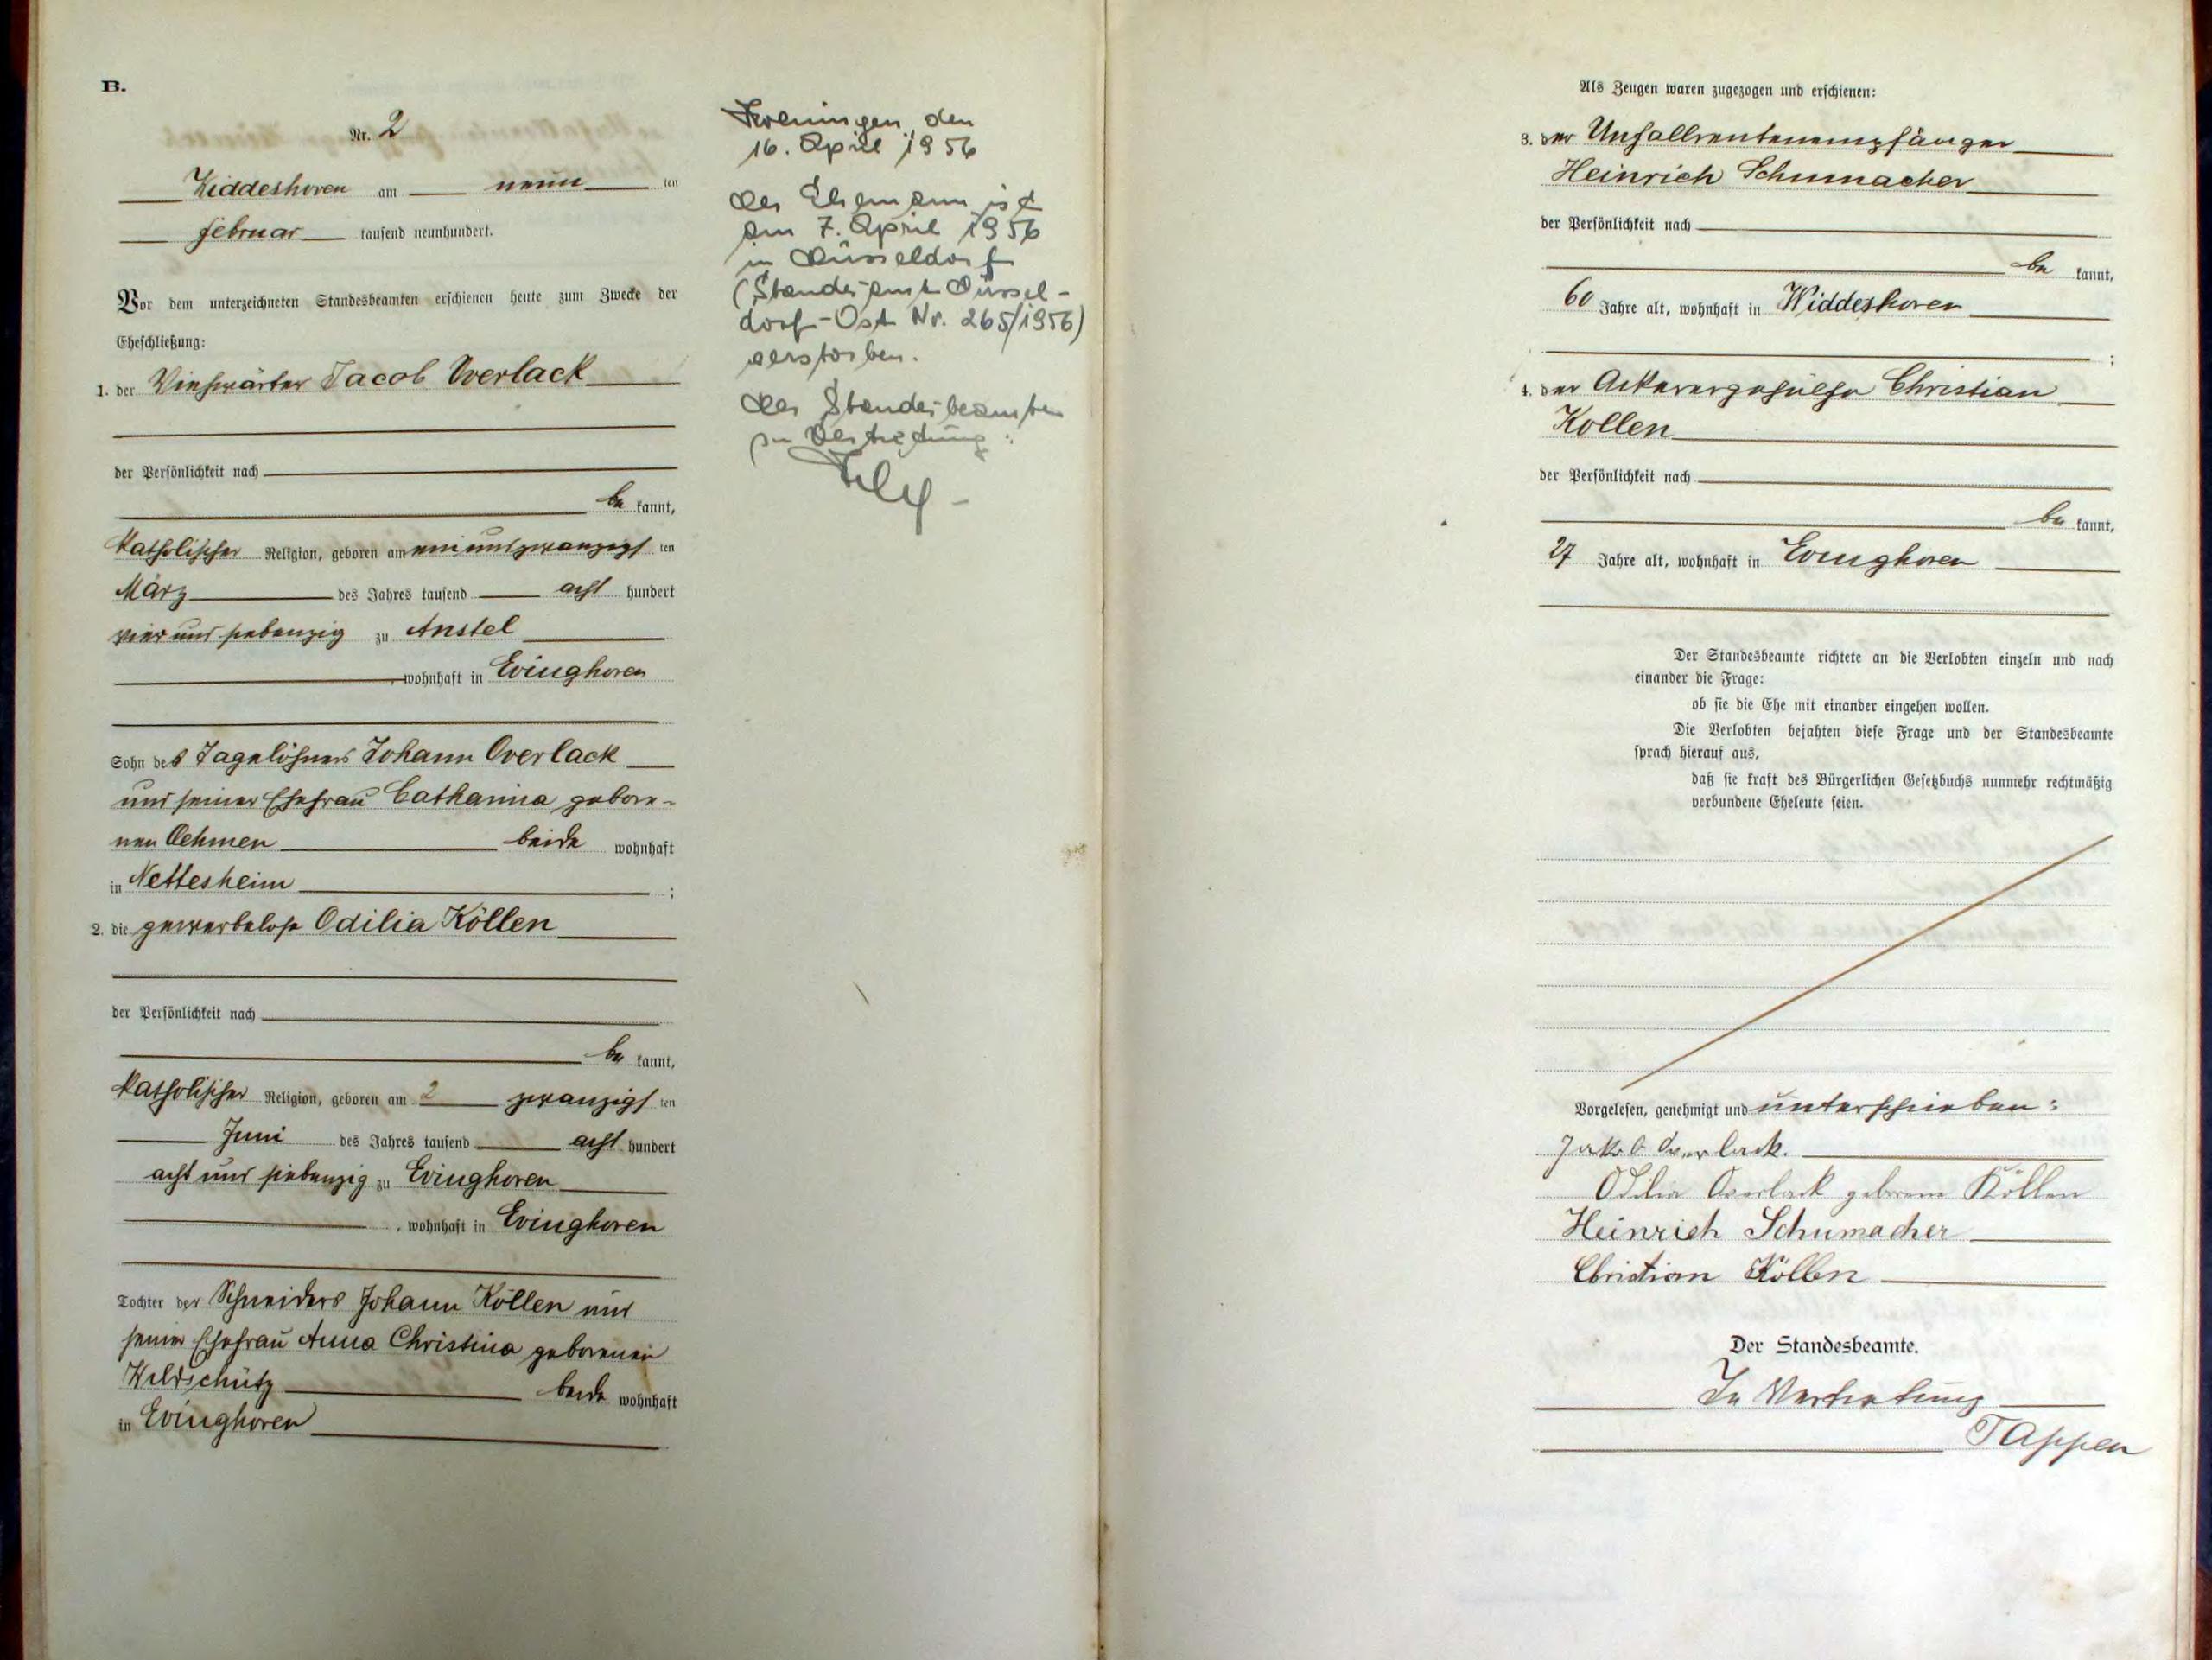 B.
Nr. 2
Widdeshoven am neun ten
Februar tausend neunhundert.
Vor dem unterzeichneten Standesbeamten erschienen heute zum Zwecke der
Eheschließung:
1. der Viehwärter Jacob Overlack
der Persönlichkeit nach
be kannt,
katholischer Religion, geboren am ein und zwanzigs ten
März des Jahres tausend acht hundert
vier und siebenzig zu Anstel
, wohnhaft in Evinghoven
Sohn des Tagelöhners Johann Overlack
und seiner Ehefrau Catharina gebore-
nen Oehmen beide wohnhaft
in Nettesheim ;
2. die gewerbelose Odilia Köllen
der Persönlichkeit nach
be kannt,
katholischer Religion, geboren am 2 zwanzigs ten
Juni des Jahres tausend acht hundert
acht und siebenzig zu Evinghoven
, wohnhaft in Evinghoven
Tochter des Schneiders Johann Köllen und
seiner Ehefrau Anna Christina geborenen
Wildschütz beide wohnhaft
in Evinghoven
den
16. April 1956
Der Ehemann ist
am 7. April 1956
in Düsseldorf
(Standesamt Düssel-
dorf-Ost Nr. 265/1956)
verstorben.
Der Standesbeamte
in Vertretung:
Als Zeugen waren zugezogen und erschienen:
3. der Unfallrentenempfänger
Heinrich Schumacher
der Persönlichkeit nach
be kannt,
60 Jahre alt, wohnhaft in Widdeshoven
;
4. der Ackerergehülfe Christian
Kollen
der Persönlichkeit nach
be kannt,
27 Jahre alt, wohnhaft in Evinghoven
Der Standesbeamte richtete an die Verlobten einzeln und nach
einander die Frage:
ob sie die Ehe mit einander eingehen wollen.
Die Verlobten bejahten diese Frage und der Standesbeamte
sprach hierauf aus,
daß sie kraft des Bürgerlichen Gesetzbuchs nunmehr rechtmäßig
verbundene Eheleute seien.
Vorgelesen, genehmigt und unterschrieben:
Jakob Overlack.
Odilia Overlack geborene Köllen
Heinrich Schumacher
Christian Köllen
Der Standesbeamte.
In Vertretung
Tappen